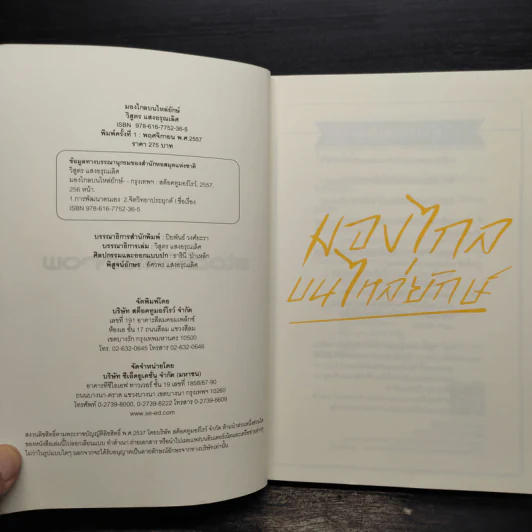 มองไกลบนไหล่ยักษ์
วิสูตร แสงอรุณเลิศ
ISBN 978-616-7752-36-5
พิมพ์ครั้งที่ 1 : พฤศจิกายน พ.ศ.2557
ราคา 275 บาท
ข้อมูลทางบรรณานุกรมของสำนักหอสมุดแห่งชาติ
วิสูตร แสงอรุณเลิศ
มองไกลบนไหล่ยักษ์.- - กรุงเทพฯ : สต็อคทูมอร์โรว์, 2557.
256 หน้า.
1.การพัฒนาตนเอง 2.จิตวิทยาประยุกต์ I.ชื่อเรื่อง
ISBN 978-616-7752-36-5
บรรณาธิการสำนักพิมพ์ : ปิยพันธ์ วงศ์ยะรา
บรรณาธิการเล่ม : วิสูตร แสงอรุณเลิศ
ศิลปกรรมและออกแบบปก : ราศินี
พิสูจน์อักษร : อัศวพร แสงอรุณเลิศ
จัดพิมพ์โดย
บริษัท สต็อคทูมอร์โรว์ จำกัด
เลขที่ 191 อาคารสีลมคอมเพล็กซ์
ห้องเอ ชั้น 17 ถนนสีลม แขวงสีลม
เขตบางรัก กรุงเทพมหานคร 10500
โทร. 02-632-0645 โทรสาร 02-632-0646
จัดจำหน่ายโดย
บริษัท ซีเอ็ดยูเคชั่น จำกัด (มหาชน)
อาคารทีซีไอเอฟ ทาวเวอร์ ชั้น 19 เลขที่ 1858/87-90
ถนนบางนา-ตราด แขวงบางนา เขตบางนา กรุงเทพฯ 10260
โทรศัพท์ 0-2739-8000, 0-2739-8222 โทรสาร 0-2739-8609
www.se-ed.com
สงวนลิขสิทธิ์ตามพระราชบัญญัติลิขสิทธิ์ พ.ศ.2537 โดยบริษัท สต็อคทูมอร์โรว์ จำกัด ห้ามนำส่วนหนึ่งส่วนใด
ของหนังสือเล่มนี้ไปลอกเลียนแบบ ทำสำเนา ถ่ายเอกสาร หรือนำไปเผยแพร่บนอินเตอร์เน็ตและเครือข่ายต่างๆ
ไม่ว่าในรูปแบบใดๆ นอกจากจะได้รับอนุญาตเป็นลายลักษณ์อักษรจากทางบริษัทเท่านั้น
มองไกล
บนไหล่ยักษ์